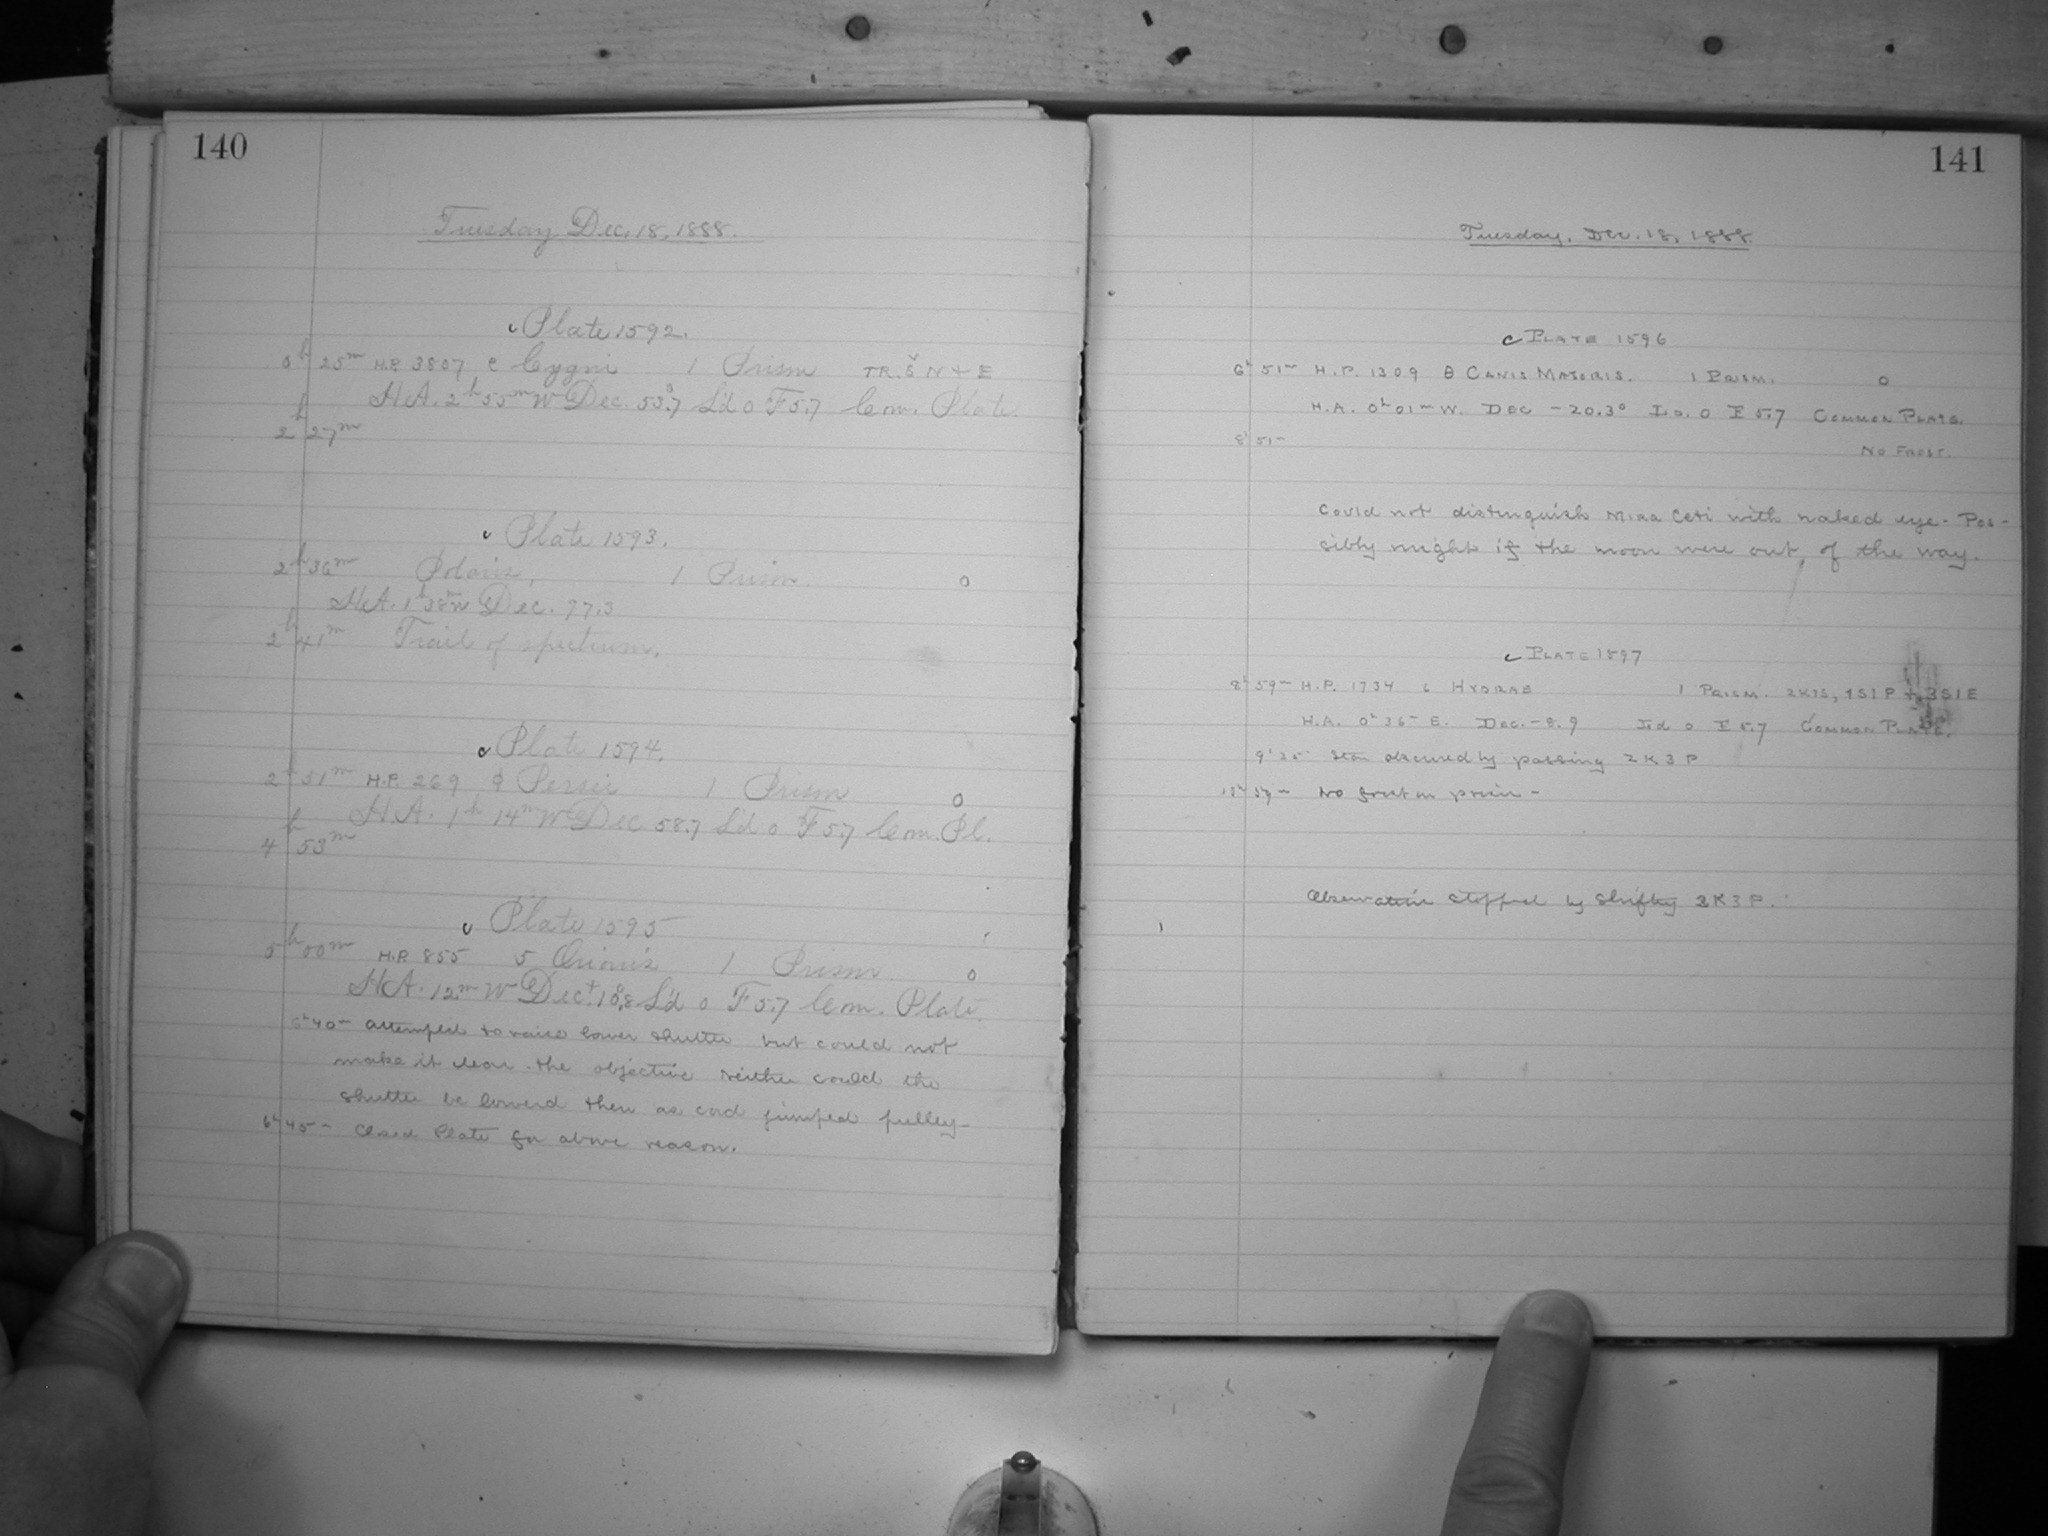 140
Tuesday Dec. 18, 1888.
Plate 1592.
0h 25m H.P. 3807 e Cygni 1 Prism TR. S N + E
H.A. 2h 55m W Dec. 53°.7 L'd 0 F 5.7 Com. Plate
2h 27m
Plate 1593.
2h 36m Polaris, 1 Prism. 0
H.A. 1h 38m W Dec.
2h 41m Trail of spectrum.
Plate 1594.
2h 51m H.P. 269 φ Persei 1 Prism 0
H.A. 1h 14m W Dec 58.7 L'd 0 F 5.7 Com. Pl.
4h 53m
Plate 1595
5h 00m H.P. 855 5 Orionis 1 Prism. 0
H.A. 12m W Dec. + L'd 0 F 5.7 Com. Plate.
40m attempted to raise lower shutter but could not
make it clear the objective neither could the
shutter be lowered then as cord jumped pulley-
6h 45m Closed Plate for above reason.
141
Tuesday, Dec. 18, 1888.
Plate 1596
6h 51m H.P. 1309 θ Canis Majoris. 1 Prism. 0
H.A. 0h 01m W. Dec -20.3° I.d. 0 F 5.7 Common Plate.
8h 51m
No Frost.
Could not distinguish Mira Ceti with naked eye- Pos-
sibly might if the moon were out of the way.
Plate 1597
8h 59m H.P. 1734 Hydrae 1 Prism. 2K1S, 4S1P + 3S1E
H.A. 0h 36m E. Dec. -8.9 I.d 0 F 5.7 Common Plate.
9h 25m Star obscured by passing 2K3P
10h 59m No frost on prism -
Observation stopped by shifting 2K3P.